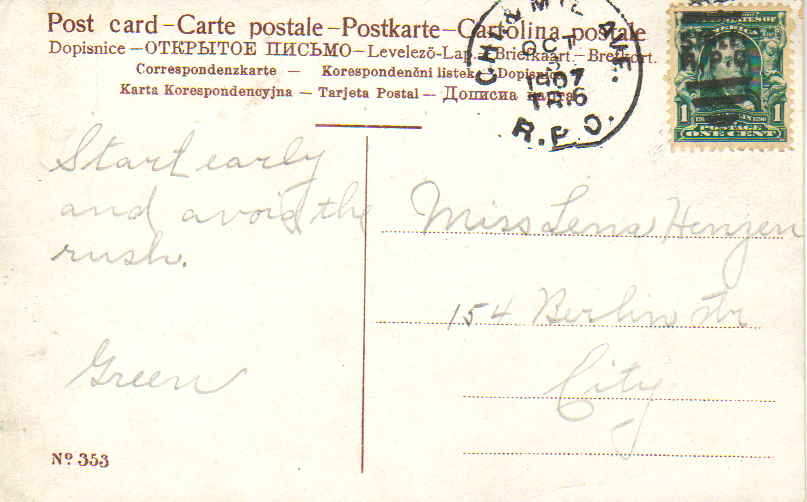 Post card – Carte postale – Postkarte – Cartolina postale
Dopisnice – ОТКРЫТОЕ ПИСЬМО – Levelező-Lap – Briefkaart – Brefkort.
Correspondenzkarte — Korespondenčni listek – Dopisnica
Karta Korespondencyjna – Tarjeta Postal – Дописна карта
CHI. & MIL. AVE.
OCT
5
1907
TR 6
R.P.O.
1 1
POSTAGE
ONE CENT
Start early
and avoid the
rush.
Green
Miss Lena Henzen
154 Berlin str
City
Nº 353